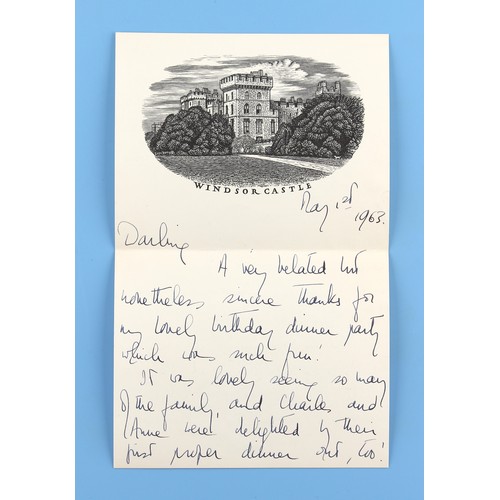 WINDSOR CASTLE
May 1st
1963.
Darling
A very belated but
nonetheless sincere thanks for
my lovely birthday dinner party
which was such fun!
It was lovely seeing so many
of the family, and Charles and
Anne were delighted by their
first proper dinner out, too!